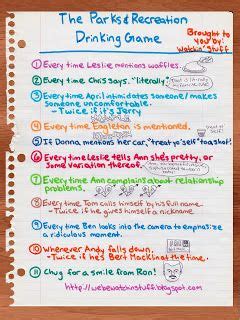 The Parks & Recreation
Drinking Game
Brought to
you by:
Watkin' Stuff
1 Every time Leslie mentions waffles.
2 Every time Chris says, "literally."
3 Every time April intimidates someone/makes
someone uncomfortable.
- Twice if it's Jerry
4 Every time Eagleton is mentioned.
5 If Donna mentions her car, "treat yo' self" too, shot!
6 Every time Leslie tells Ann she's pretty, or
some variation thereof.
7 Every time Ann complains about relationship
problems.
8 Every time Tom calls himself by his full name
- Twice if he gives himself a nickname
9 Every time Ben looks into the camera to emphasize
a ridiculous moment.
10 Whenever Andy falls down.
- Twice if he's Bert Macklin at the time.
11 Chug for a smile from Ron!
http://webewatkinstuff.blogspot.com